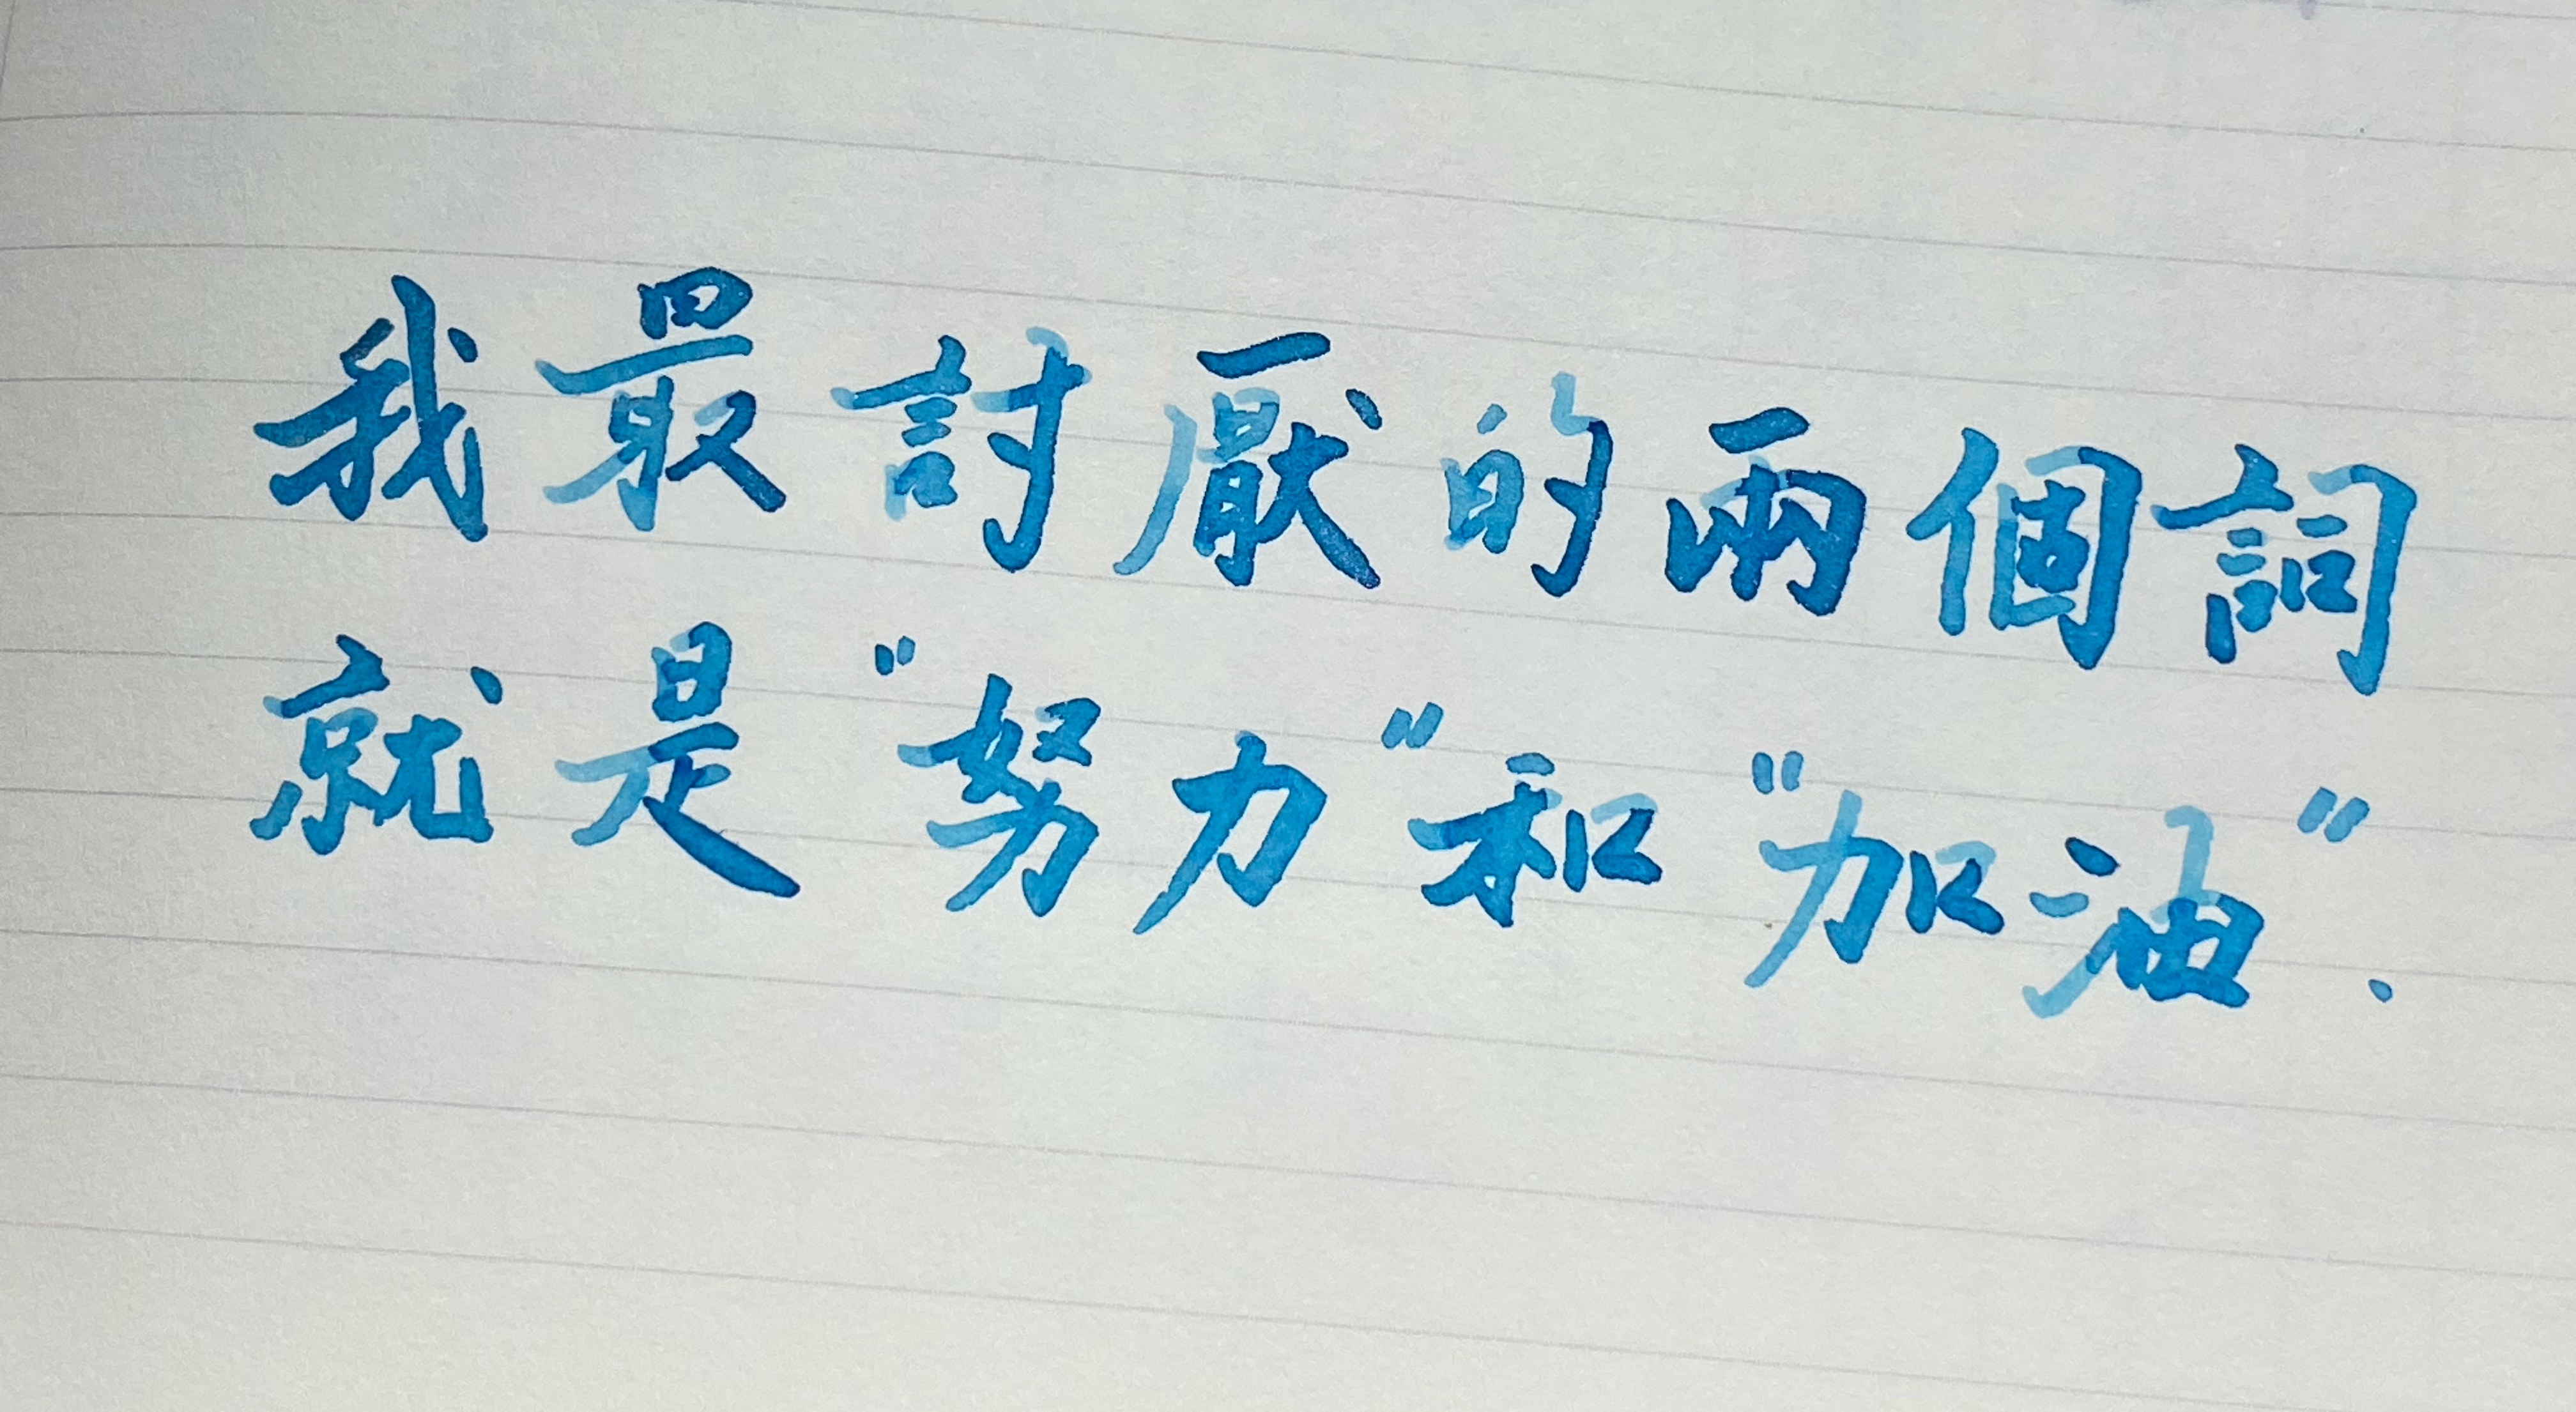 我最討厭的兩個詞
就是"努力"和"加油".